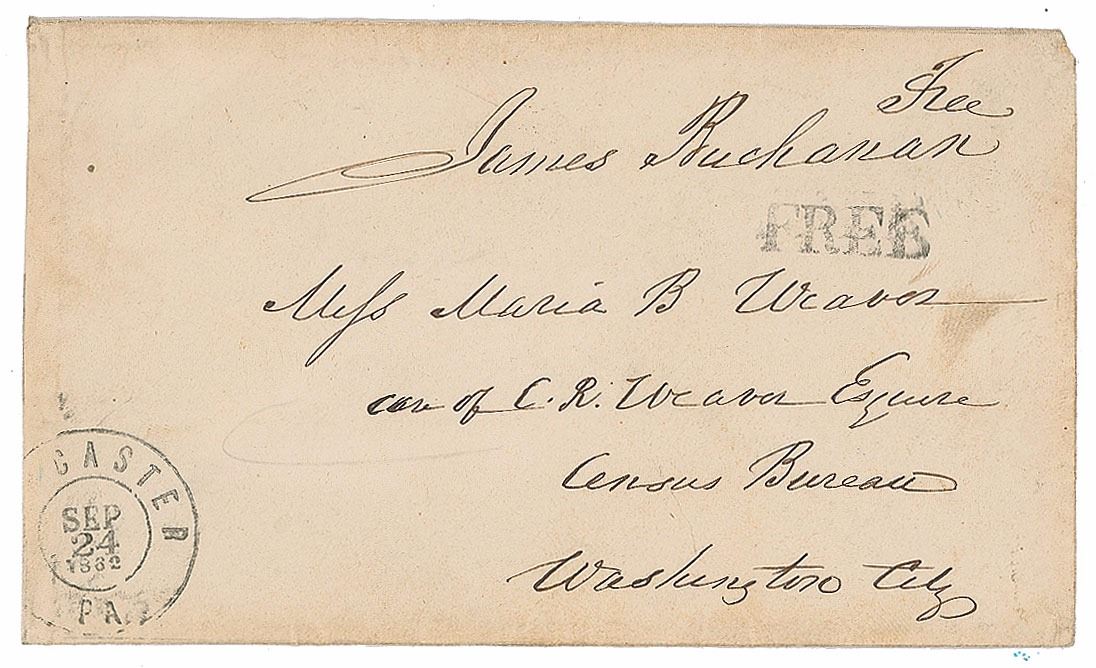 Free
James Buchanan
FREE
Miss Maria B Weaver
care of C. R. Weaver Esquire
Census Bureau
Washington City
CASTER
SEP
24
1862
PA.